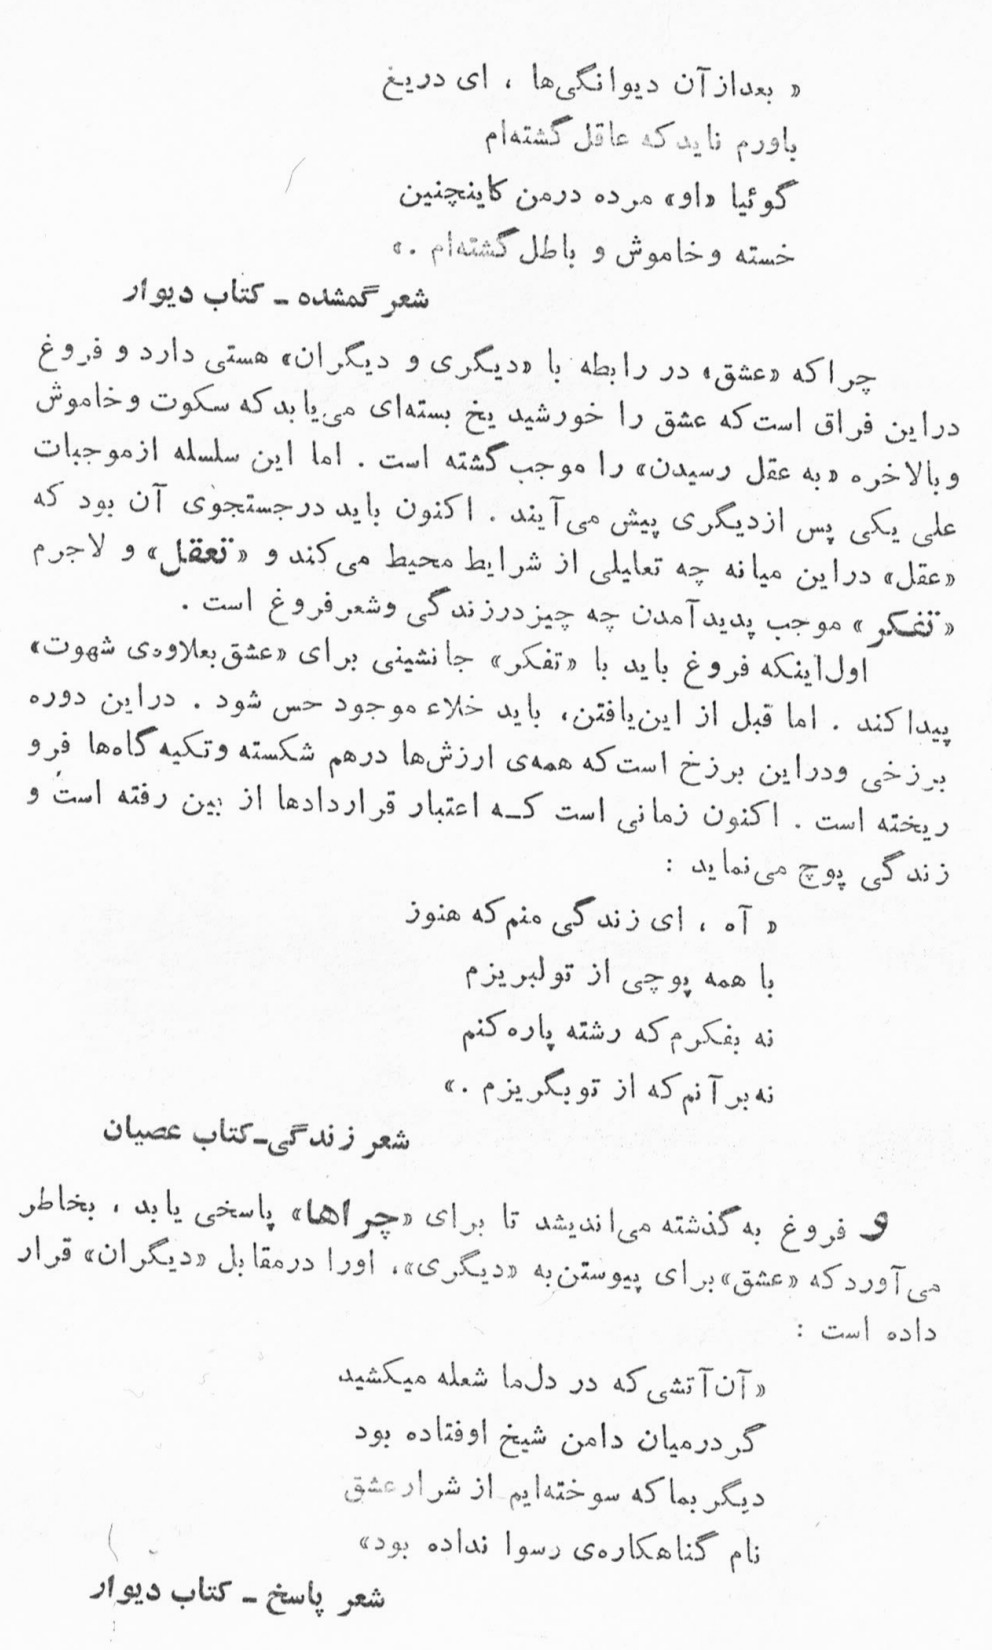 « بعدازآن دیوانگی‌ها ، ای دریغ
باورم ناید که عاقل گشته‌ام
گوئیا «او» مرده درمن کاینچنین
خسته و خاموش و باطل گشته‌ام .»
شعر گمشده ـ کتاب دیوار
چراکه «عشق» در رابطه با «دیگری و دیگران» هستی دارد و فروغ
دراین فراق است که عشق را خورشید یخ بسته‌ای می‌یابد که سکوت و خاموش
و بالاخره «به عقل رسیدن» را موجب گشته است . اما این سلسله ازموجبات
علی یکی پس ازدیگری پیش می‌آیند . اکنون باید درجستجوی آن بود که
«عقل» دراین میانه چه تعلیلی از شرایط محیط می‌کند و «تعقل» و لاجرم
«تفکر» موجب پدیدآمدن چه چیزدرزندگی وشعرفروغ است .
اول‌اینکه فروغ باید با «تفکر» جانشینی برای «عشق بعلاوه‌ی شهوت»
پیداکند . اما قبل از این‌یافتن، باید خلاء موجود حس شود . دراین دوره
برزخی ودراین برزخ است که همه‌ی ارزش‌ها درهم شکسته وتکیه گاه‌ها فرو
ریخته است . اکنون زمانی است کـه اعتبار قراردادها از بین رفته است و
زندگی پوچ می‌نماید :
« آه ، ای زندگی منم که هنوز
با همه پوچی از تو لبریزم
نه بفکرم که رشته پاره کنم
نه برآنم که از تو بگریزم .»
شعر زندگی-کتاب عصیان
و فروغ به گذشته می‌اندیشد تا برای «چراها» پاسخی یابد ، بخاطر
می‌آورد که «عشق» برای پیوستن به «دیگری»، اورا درمقابل «دیگران» قرار
داده است :
« آن‌آتشی که در دل‌ما شعله میکشید
گر درمیان دامن شیخ اوفتاده بود
دیگر بما که سوخته‌ایم از شرار عشق
نام گناهکاره‌ی رسوا نداده بود»
شعر پاسخ ـ کتاب دیوار